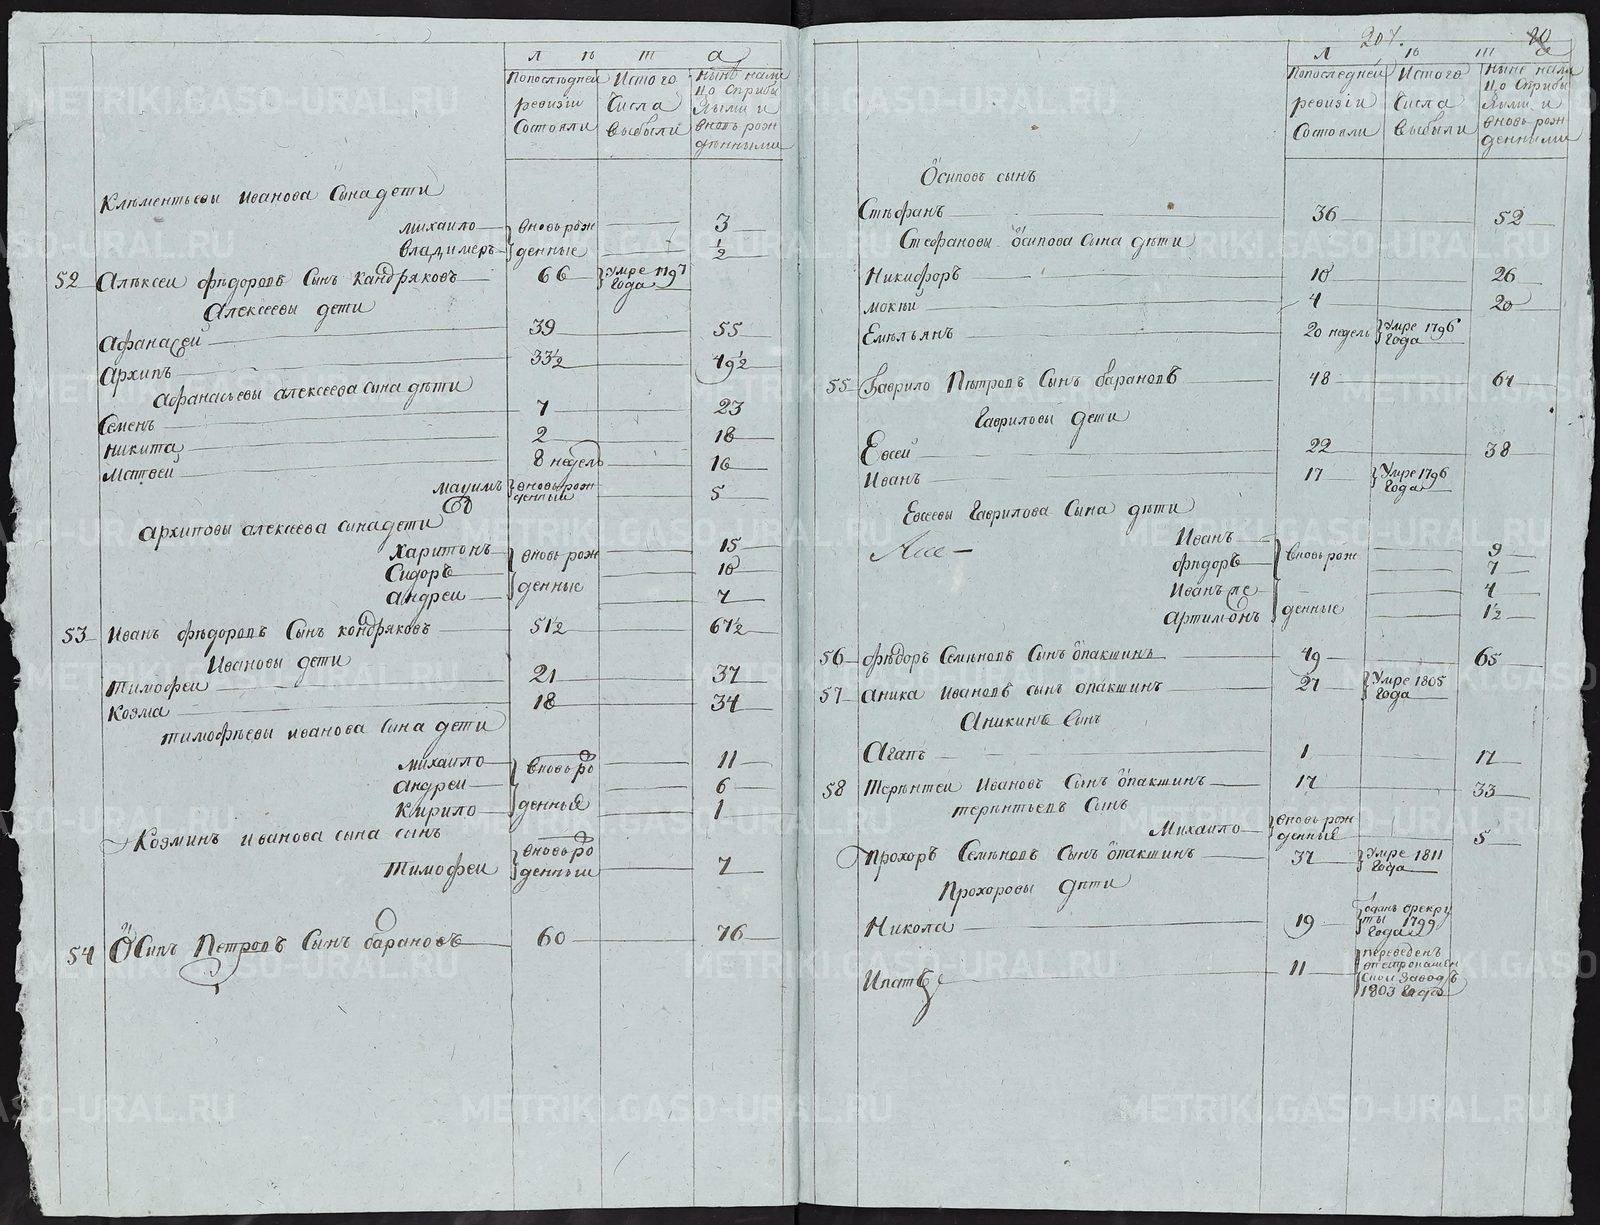 Л ѣ т а
Попоследнеи Истого Нынѣ нали
ревизии числа цо сприбы
Состояли выбыли лыми и
вновь рож
денными
Клѣментьевы Иванова Сына дети
михаило вновь рож 3
владимеръ денные ½
52 Алѣксеи фѣдоровъ Сынъ кандряковъ 66 Умре 1797 года
Алексеевы дети
Афанасей 39 55
Архипъ 33½ 49½
Афанасьевы алексеева сына дѣти
Семенъ 7 23
Никита 2 18
Матвей 8 недель 16
вновь рож
денный 5
архиповы алексеева сына дети
Харитонъ вновь рож 15
Сидоръ 10
андреи денные 7
53 Иванъ фѣдоровъ Сынъ кондряковъ 51½ 67½
Ивановы дети
Тимофеи 21 37
Козма 18 34
тимофѣевы иванова сына дети
михаило вновь ро 11
андреи 6
Кирило денныя 1
Козминъ иванова сына сынъ
Тимофеи вновь ро денныи 7
54 Осипъ Петровъ Сынъ барановъ 60 76
207.
Л ѣ т а
Попоследней Истого Ныне нали
ревизіи числа цо сприбы
Состояли выбыли лыми и
вновь рож
денными
Осиповъ сынъ
Стѣфанъ 36 52
Стефановы осипова Сына дѣти
Никифоръ 10 26
мокѣй 4 20
Емѣльянъ 20 недель Умре 1796 года
55 Гаврило Пѣтровъ Сынъ барановъ 48 64
Гавриловы дети
Евсей 22 38
Иванъ 17 Умре 1796 года
Евсеевы Гаврилова Сына дѣти
Иванъ вновь рож 9
фѣдоръ 7
Иванъ же 4
Артимонъ денные 1½
56 фѣдоръ Семѣновъ Сынъ опакшинъ 49 65
57 аника Ивановъ сынъ опакшинъ 27 Умре 1805 года
Аникинъ Сынъ
Агапъ 1 17
58 Терѣнтеи Ивановъ Сынъ опакшинъ 17 33
терѣнтьевъ Сынъ
Михаило вновь рож денныя 5
Прохоръ Семѣновъ Сынъ опакшинъ 37 Умре 1811 года
Прохоровы дѣти
Никола 19 Отданъ врекру
ты 1799
года
Ипатъ 11 переведенъ
скои заводъ
1803 года
METRIKI.GASO-URAL.RU